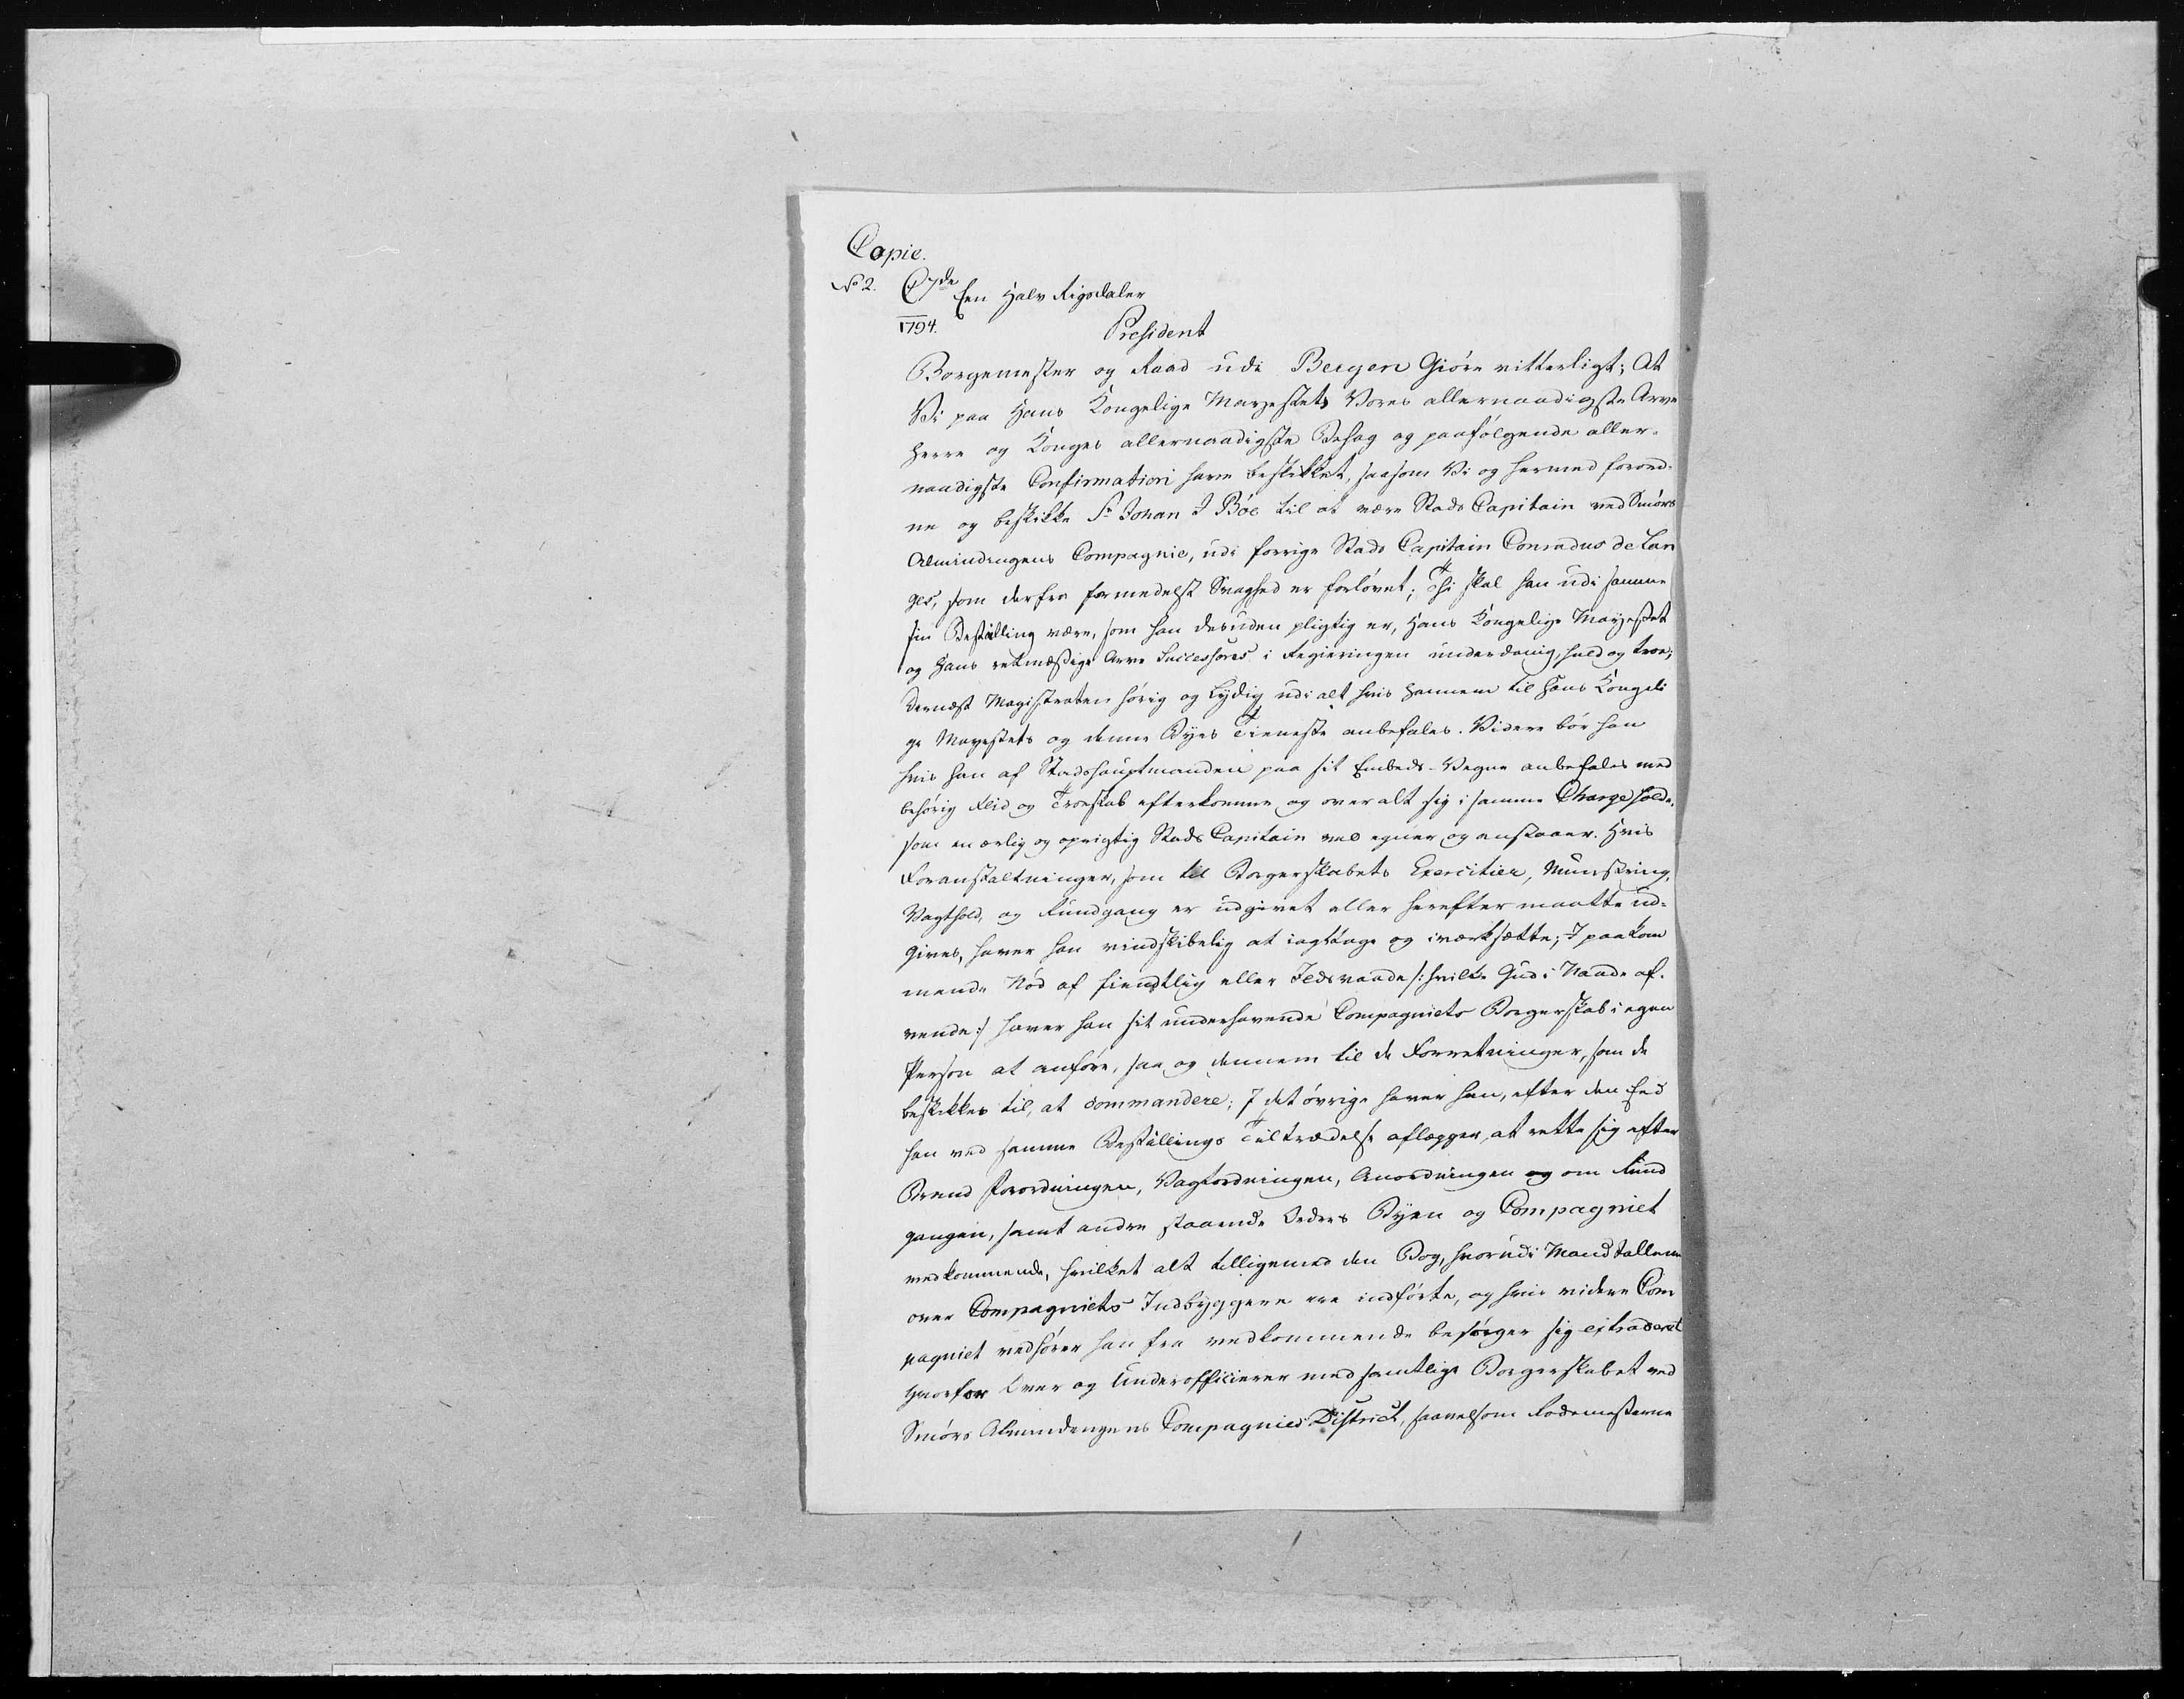 Copie.
No 2. C7de Een Halv Rigsdaler
1794.
President
Borgemester og Raad udi Bergen Giöre vitterligt; At
Vi paa Hans Kongelige Mayestets Vores allernaadigste Arve
Herre og Konges allernaadigste Behag og paafölgende aller-
naadigste Confirmation have beskikket, saasom Vi og hermed forord-
ne og beskikke Sr Johan J Böe til at være Stads Capitain ved Smörs
Almindingens Compagnie, udi forrige Stads Capitain Conradus de Lan
ges, som derfra formedelst Svaghed er forlövet; Thi skal han udi samme
sin Bestilling være, som han desuden pligtig er, Hans Kongelige Mayestet
og Hans retmæssige Arve Successores i Regieringen underdanig, huld og troe;
dernæst Magistraten hörig og Lydig udi alt hvis hannem til Hans Kongeli
ge Mayestets og denne Byes Tieneste anbefales. Videre bör han
hvis han af Stadshauptmanden paa sit Embeds-Vegne anbefales med
behörig Flid og Troeskab efterkomme og over alt sig i samme Charge holde,
som en ærlig og oprigtig Stads Capitain vel egner og anstaaer. Hvis
Foranstaltninger, som til Borgerskabets Exercitier, Münstring,
Vagthold, og Rundgang er udgivet eller herefter maatte ud-
gives, haver han vindskibelig at iagttage og iværksætte; I paakom
mende Nöd af fiendtlig eller Ildsvaade /: hvilke Gud i Naade af-
vende :/ haver han sit underhavende Compagniets Borgerskab i egen
Person at anföre, saa og dennem til de Forretninger, som de
beskikkes til, at commandere; I det övrige haver han, efter den Eed
han ved samme Bestillings Tiltrædelse aflægger, at rette sig efter
Brand Forordningen, Vagtordningen, Anordningen og om Rund
gangen, samt andre staaende Orders Byen og Compagniet
vedkommende, hvilket alt tilligemed den Bog, hvorudi Mandtallene
over Compagniets Indbyggere ere indförte, og hvis videre Com
pagniet vedhörer han fra vedkommende besörger sig extraderet
Hvorfor Over og Underofficierer med samtlige Borgerskabet ved
Smörs Almindengens Compagnies District, saavelsom Rodemesterne